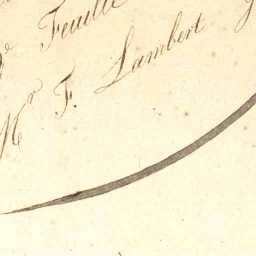 Feuille
Mr F. Lambert